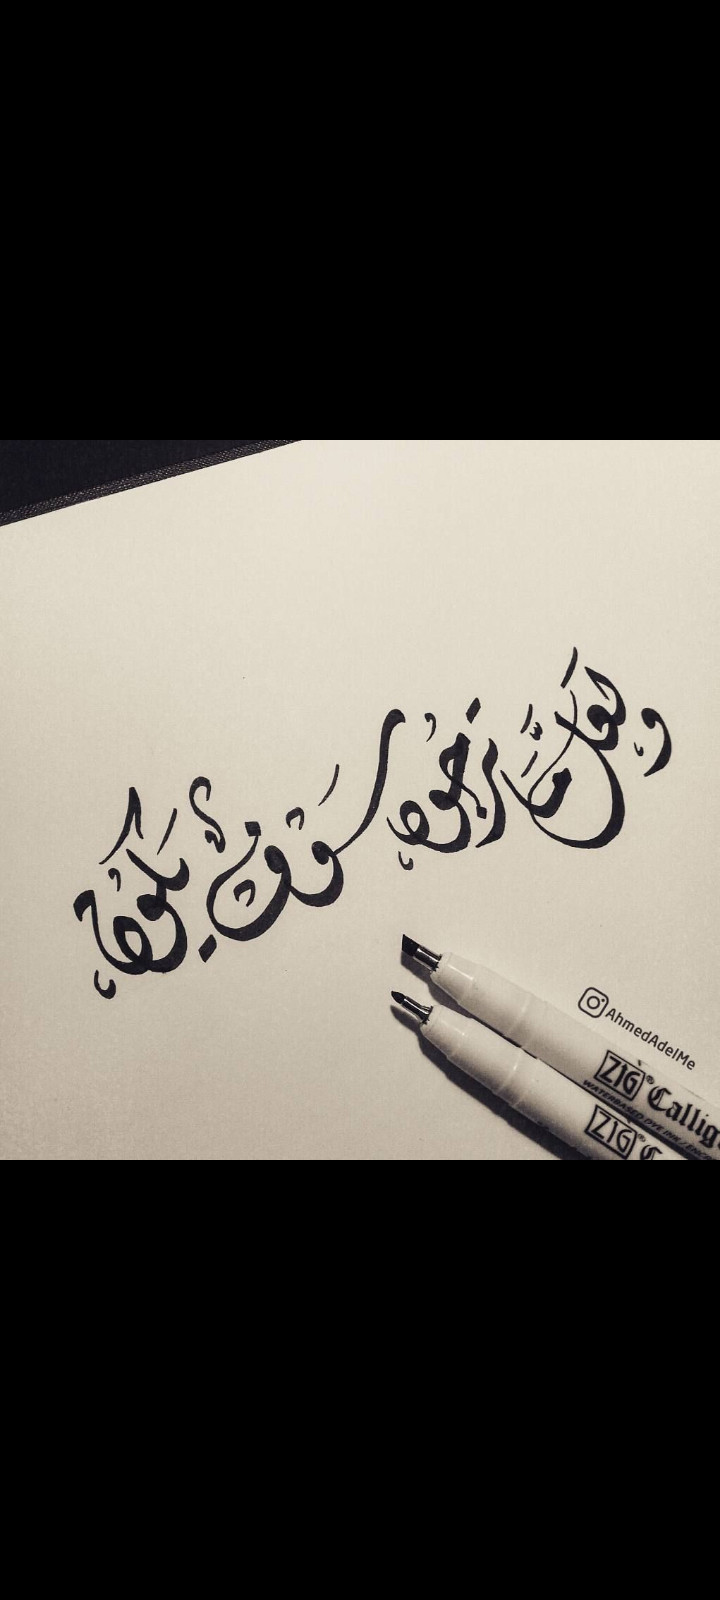 ولعل ما نرجوه سوف يكون
AhmedAdelMe
ZIG® Callig
WATERBASED DYE INK / ENCR
ZIG® C